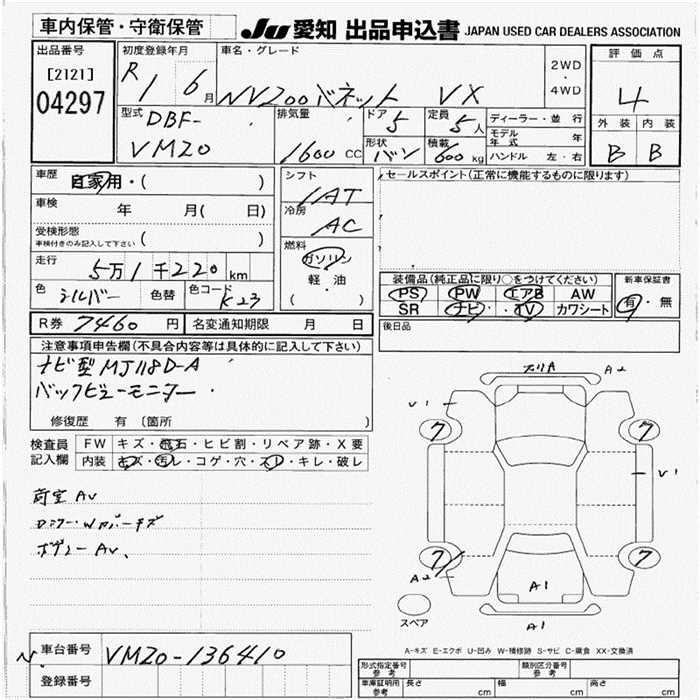 車内保管・守衛保管
JU 愛知 出品申込書 JAPAN USED CAR DEALERS ASSOCIATION
出品番号
[2121]
04297
初度登録年月
R 1 6月
車名・グレード
NV200バネット VX
2WD
・
4WD
評価点
4
外装 内装
B B
型式
DBF-
VM20
排気量
1600 CC
ドア 5
定員 5人
形状 バン
積載 600 kg
ディーラー・並行
モデル年式 年
ハンドル 左・右
車歴 自家用・( )
車検 年 月( 日)
受検形態
車検付きのみ記入して下さい ( )
走行 5万1千220km
色 シルバー 色替 色コード K23
シフト
IAT
冷房
AC
燃料
ガソリン
軽・油
( ・ )
セールスポイント(正常に機能するものに限ります)
装備品(純正品に限り○をつけてください)
PS PW エアB AW
SR ナビ・TV カワシート
新車保証書
有・無
後日品
R券 7460円 名変通知期限 月 日
注意事項申告欄(不具合内容等は具体的に記入して下さい)
ナビ型MJ118D-A
バックビューモニター
修復歴 有 〔箇所 〕
検査員記入欄
FW キズ・飛石・ヒビ割・リペア跡・X要
内装 キズ・汚レ・コゲ・穴・スレ・キレ・破レ
荷室 AU
ボディー AU、
A2
U1
7 7
U1
7 7
A2
A1
A1
スペア
A-キズ E-エクボ U-凹み W-補修跡 S-サビ C-腐食 XX-交換済
車台番号 VM20-136410
登録番号
形式指定番号 参考
類別区分番号 参考
車庫証明用 参考 長さ cm 幅 cm 高さ cm